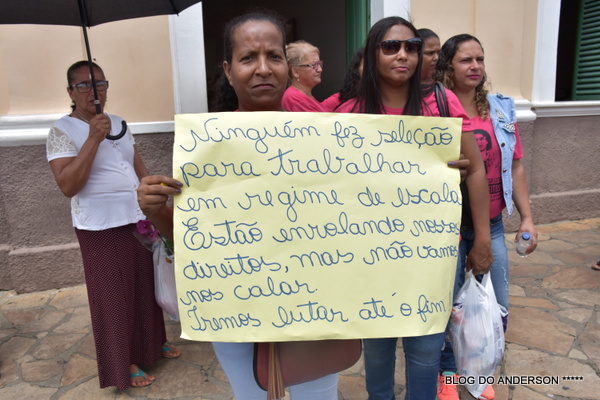 Ninguém fez seleção
para trabalhar
em regime de escala
Estão enrolando nossos
direitos, mas não vamos
nos calar.
Iremos lutar até o fim
BLOG DO ANDERSON *****